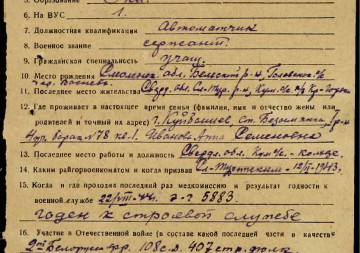 5. Образование
6. На ВУС 1.
7. Должностная квалификация Автоматчик
8. Военное звание сержант
9. Гражданская специальность учащ.
10. Место рождения Смоленск. обл. Бельский р-н,
11. Последнее место жительства Свердл. обл. р-н,
12. Где проживает в настоящее время семья (фамилия, имя и отчество жены или
родителей и точный их адрес) г. Куйбышев, ст. Безымянка,
барак №78 кв. 1. Иванова Анна Семеновна
13. Последнее место работы и должность Свердл. обл.
14. Каким райгорвоенкоматом и когда призван 12/II-1943.
15. Когда и где проходил последний раз медкомиссию и результат годности к
военной службе 22/VIII-44г. э-г 5883.
годен к строевой службе
16. Участие в Отечественной войне (в составе какой последней части в качестве
2ой Белорусс. фр. 108 с.д. 407 стр. полк